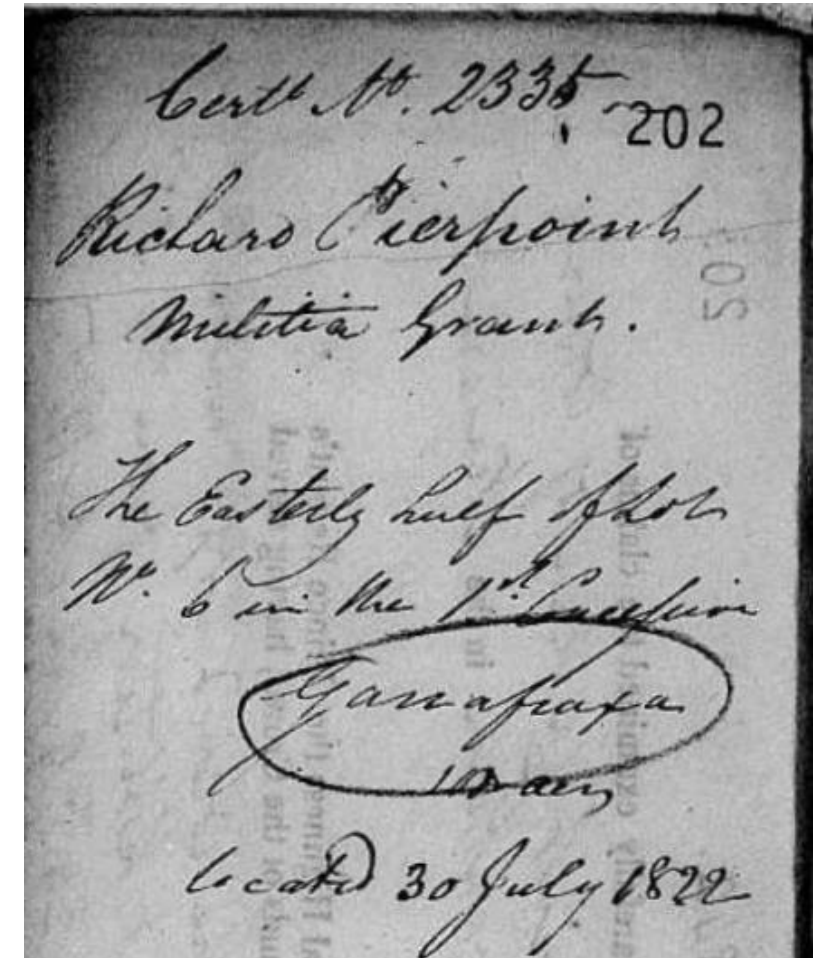 Certt No. 2335
202
Richard Pierpoint
Militia Grant.
The Easterly half of Lot
No. 6 in the 1st Concession
Garrafraxa
located 30 July 1822